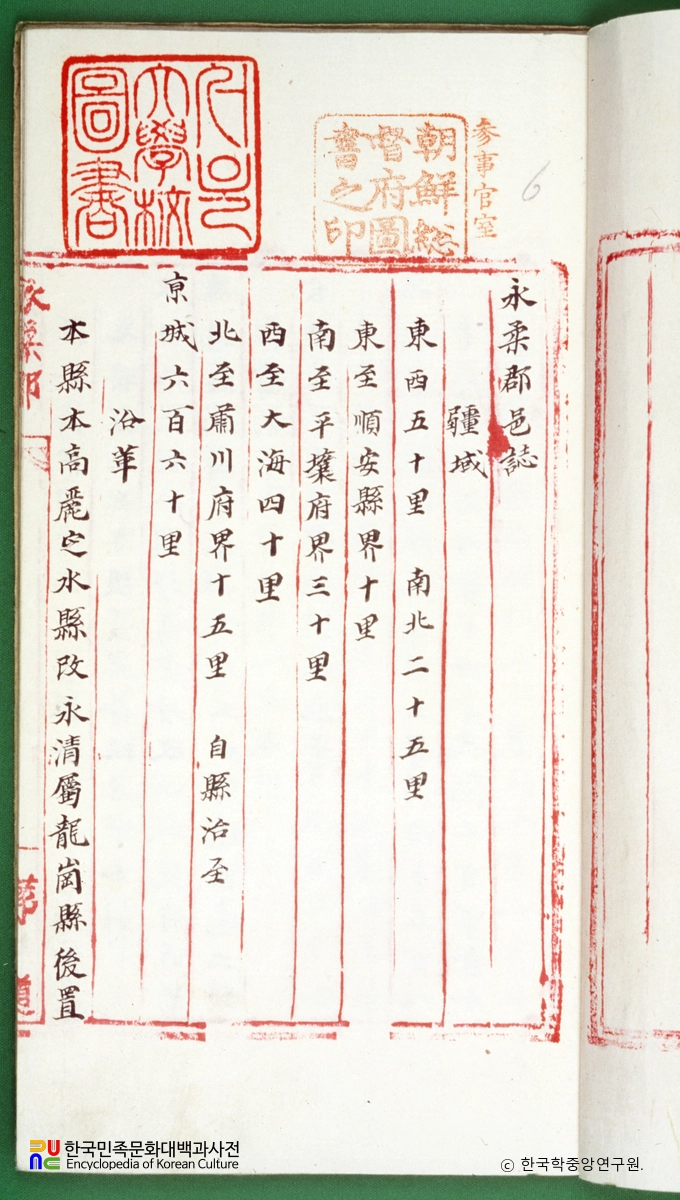 朝鮮総
督府圖
書之印
参事官室
大學校
圖書
6
永柔郡邑誌
疆域
東西五十里 南北二十五里
東至順安縣界十里
南至平壤府界三十里
西至大海四十里
北至肅川府界十五里 自縣治至
京城六百六十里
沿革
本縣本高麗定水縣改永清屬龍崗縣後置
永柔郡
한국민족문화대백과사전
Encyclopedia of Korean Culture
© 한국학중앙연구원.